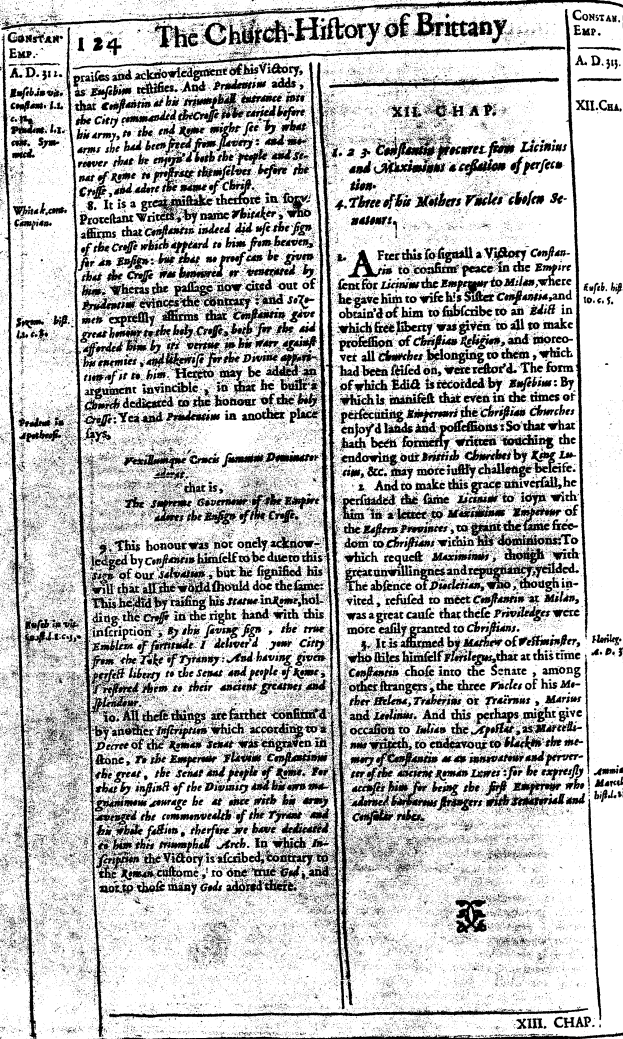 CONSTAN.
EMP.
124
The Church-Hiſtory of Brittany
CONSTAN.
EMP.
A. D. 312.
Euſeb. in vit.
Conſtant. l.1.
c. 32.
Prudent. l.1.
cont. Sym-
mach.
Whitak. cont.
Campian.
Sozom. hiſt.
l.1. c.8.
Prudent in
Apotheoſ.
Euſeb in vit.
praiſes and acknowledgment of his Victory,
as Euſebius teſtifies. And Prudentius adds,
that Conſtantin at his triumphall entrance into
the Citty commanded the Croſſe to be caried before
his army, to the end Rome might ſee by what
arms ſhe had been freed from ſlavery: and mo-
reover that he enjoyn'd both the people and Se-
nat of Rome to proſtrate themſelves before the
Croſſe, and adore the name of Chriſt.
8. It is a great miſtake therfore in ſom
Proteſtant Writers, by name Whitaker, who
affirms that Conſtantin indeed did uſe the ſign
of the Croſſe which appeard to him from heaven,
for an Enſign: but that no proof can be given
that the Croſſe was honoured or venerated by
him. Wheras the paſſage now cited out of
Prudentius evinces the contrary: and Sozo-
men expreſſly affirms that Conſtantin gave
great honour to the holy Croſſe, both for the aid
afforded him by its vertue in his warr againſt
his enemies, and likewiſe for the Divine appari-
tion of it to him. Hereto may be added an
argument invincible, in that he built a
Church dedicated to the honour of the holy
Croſſe: Yea and Prudentius in another place
ſays,
Vexillumque Crucis ſummus Dominator
adorat.
that is,
The Supreme Governour of the Empire
adores the Enſign of the Croſſe.
9. This honour was not onely acknow-
ledged by Conſtantin himſelf to be due to this
Sign of our Salvation, but he ſignified his
will that all the world ſhould doe the ſame:
This he did by raiſing his Statue in Rome, hol-
ding the Croſſe in the right hand with this
inſcription, By this ſaving ſign, the true
Emblem of fortitude I deliver'd your Citty
from the Yoke of Tyranny: And having given
perfect liberty to the Senat and people of Rome,
I reſtored them to their ancient greatnes and
ſplendour.
10. All theſe things are farther confirm'd
by another Inſcription which according to a
Decree of the Roman Senat was engraven in
ſtone, To the Emperour Flavius Conſtantinus
the great, the Senat and people of Rome. For
that by inſtinct of the Divinity and his own ma-
gnanimous courage he at once with his army
avenged the commonwealth of the Tyrant and
his whole faction, therfore we have dedicated
to him this triumphall Arch. In which In-
ſcription the Victory is aſcribed, contrary to
the Roman cuſtome, to one true God, and
not to thoſe many Gods adored there.
XII. CHAP.
1. 2 3. Conſtantin procures from Licinius
and Maximinus a ceſſation of perſecu
tion.
4. Three of his Mothers Vncles choſen Se-
natours.
1. AFter this ſo ſignall a Victory Conſtan-
tin to confirm peace in the Empire
ſent for Licinius the Emperour to Milan, where
he gave him to wife his Siſter Conſtantia, and
obtain'd of him to ſubſcribe to an Edict in
which free liberty was given to all to make
profeſſion of Chriſtian Religion, and moreo-
ver all Churches belonging to them, which
had been ſeiſed on, were reſtor'd. The form
of which Edict is recorded by Euſebius: By
which is manifeſt that even in the times of
perſecuting Emperours the Chriſtian Churches
enjoy'd lands and poſſeſſions: So that what
hath been formerly written touching the
endowing our Brittiſh Churches by King Lu-
cius, &c. may more iuſtly challenge beleife.
2 And to make this grace univerſall, he
perſuaded the ſame Licinius to ioyn with
him in a letter to Maximinus Emperour of
the Eaſtern Provinces, to grant the ſame free-
dom to Chriſtians within his dominions: To
which requeſt Maximinus, though with
great unwillingnes and repugnancy, yeilded.
The abſence of Diocletian, who, though in-
vited, refuſed to meet Conſtantin at Milan,
was a great cauſe that theſe Priviledges were
more eaſily granted to Chriſtians.
3. It is affirmed by Mathew of Weſtminſter,
who ſtiles himſelf Florilegus, that at this time
Conſtantin choſe into the Senate, among
other ſtrangers, the three Vncles of his Mo-
ther Helena, Traherius or Traërnus, Marius
and Leolinus. And this perhaps might give
occaſion to Iulian the Apoſtat, as Marcelli-
nus writeth, to endeavour to blacken the me-
mory of Conſtantin as an innovatour and perver-
ter of the ancient Roman Lawes: for he expreſſly
accuſes him for being the firſt Emperour who
adorned barbarous ſtrangers with Senatoriall and
Conſular robes.
A. D. 313.
XII. CHA.
Euſeb. hiſt
10. c. 5.
Florileg.
A. D. 3
Ammia
Marcel
hiſt. l. 2
XIII. CHAP.